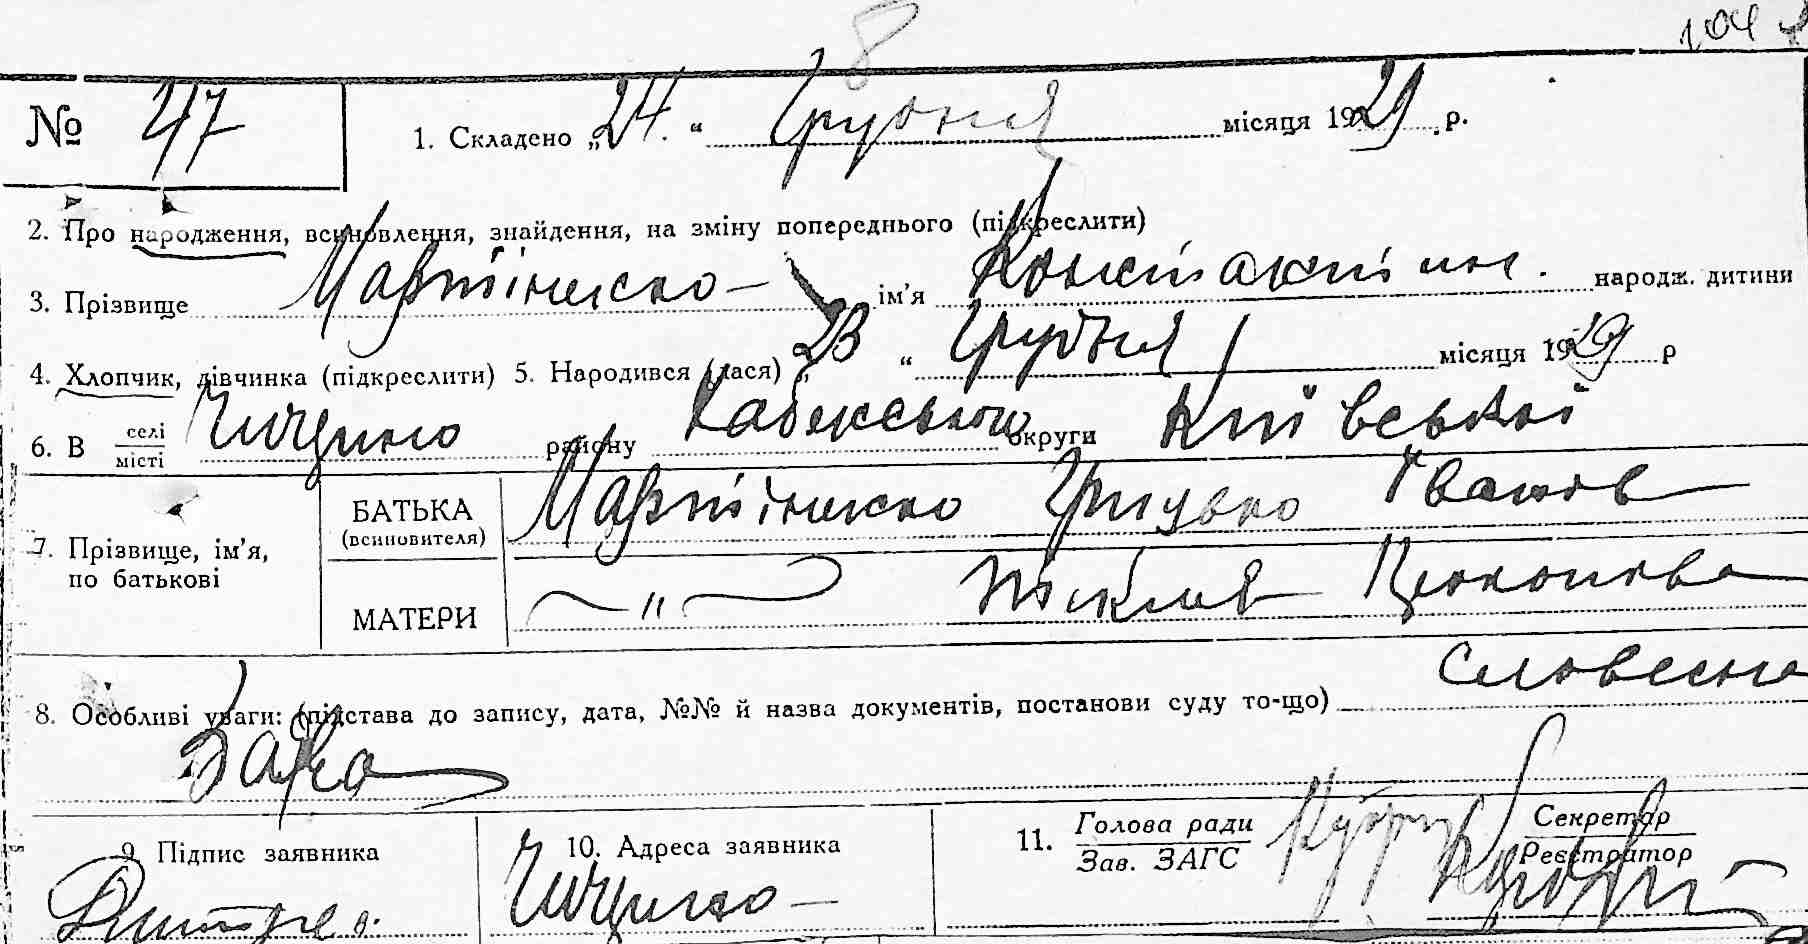 104
8
№ 47
1. Складено „24. “ Грудня місяця 1929 р.
2. Про народження, всиновлення, знайдення, на зміну попереднього (підкреслити)
3. Прізвище Мартіненко ім’я Константін. народж. дитини
4. Хлопчик, дівчинка (підкреслити) 5. Народився (лася) „23 “ Грудня місяця 1929 р
6. В селі місті району округи Київської
7. Прізвище, ім’я, по батькові
БАТЬКА (всиновителя) Мартіненко Іванов
МАТЕРИ — " — Прокопова
8. Особливі уваги: (підстава до запису, дата, №№ й назва документів, постанови суду то-що) словесна
Заява
9. Підпис заявника
10. Адреса заявника
11. Голова ради Зав. ЗАГС
Секретар Реєстратор